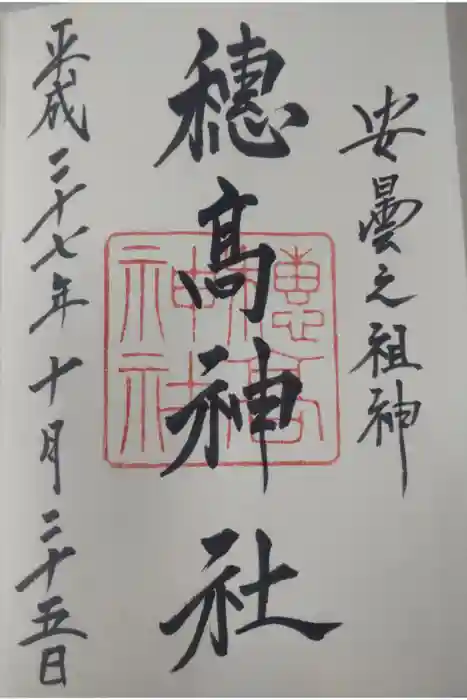 安曇之祖神
穂高神社
穂高神社
平成二十七年十月二十五日